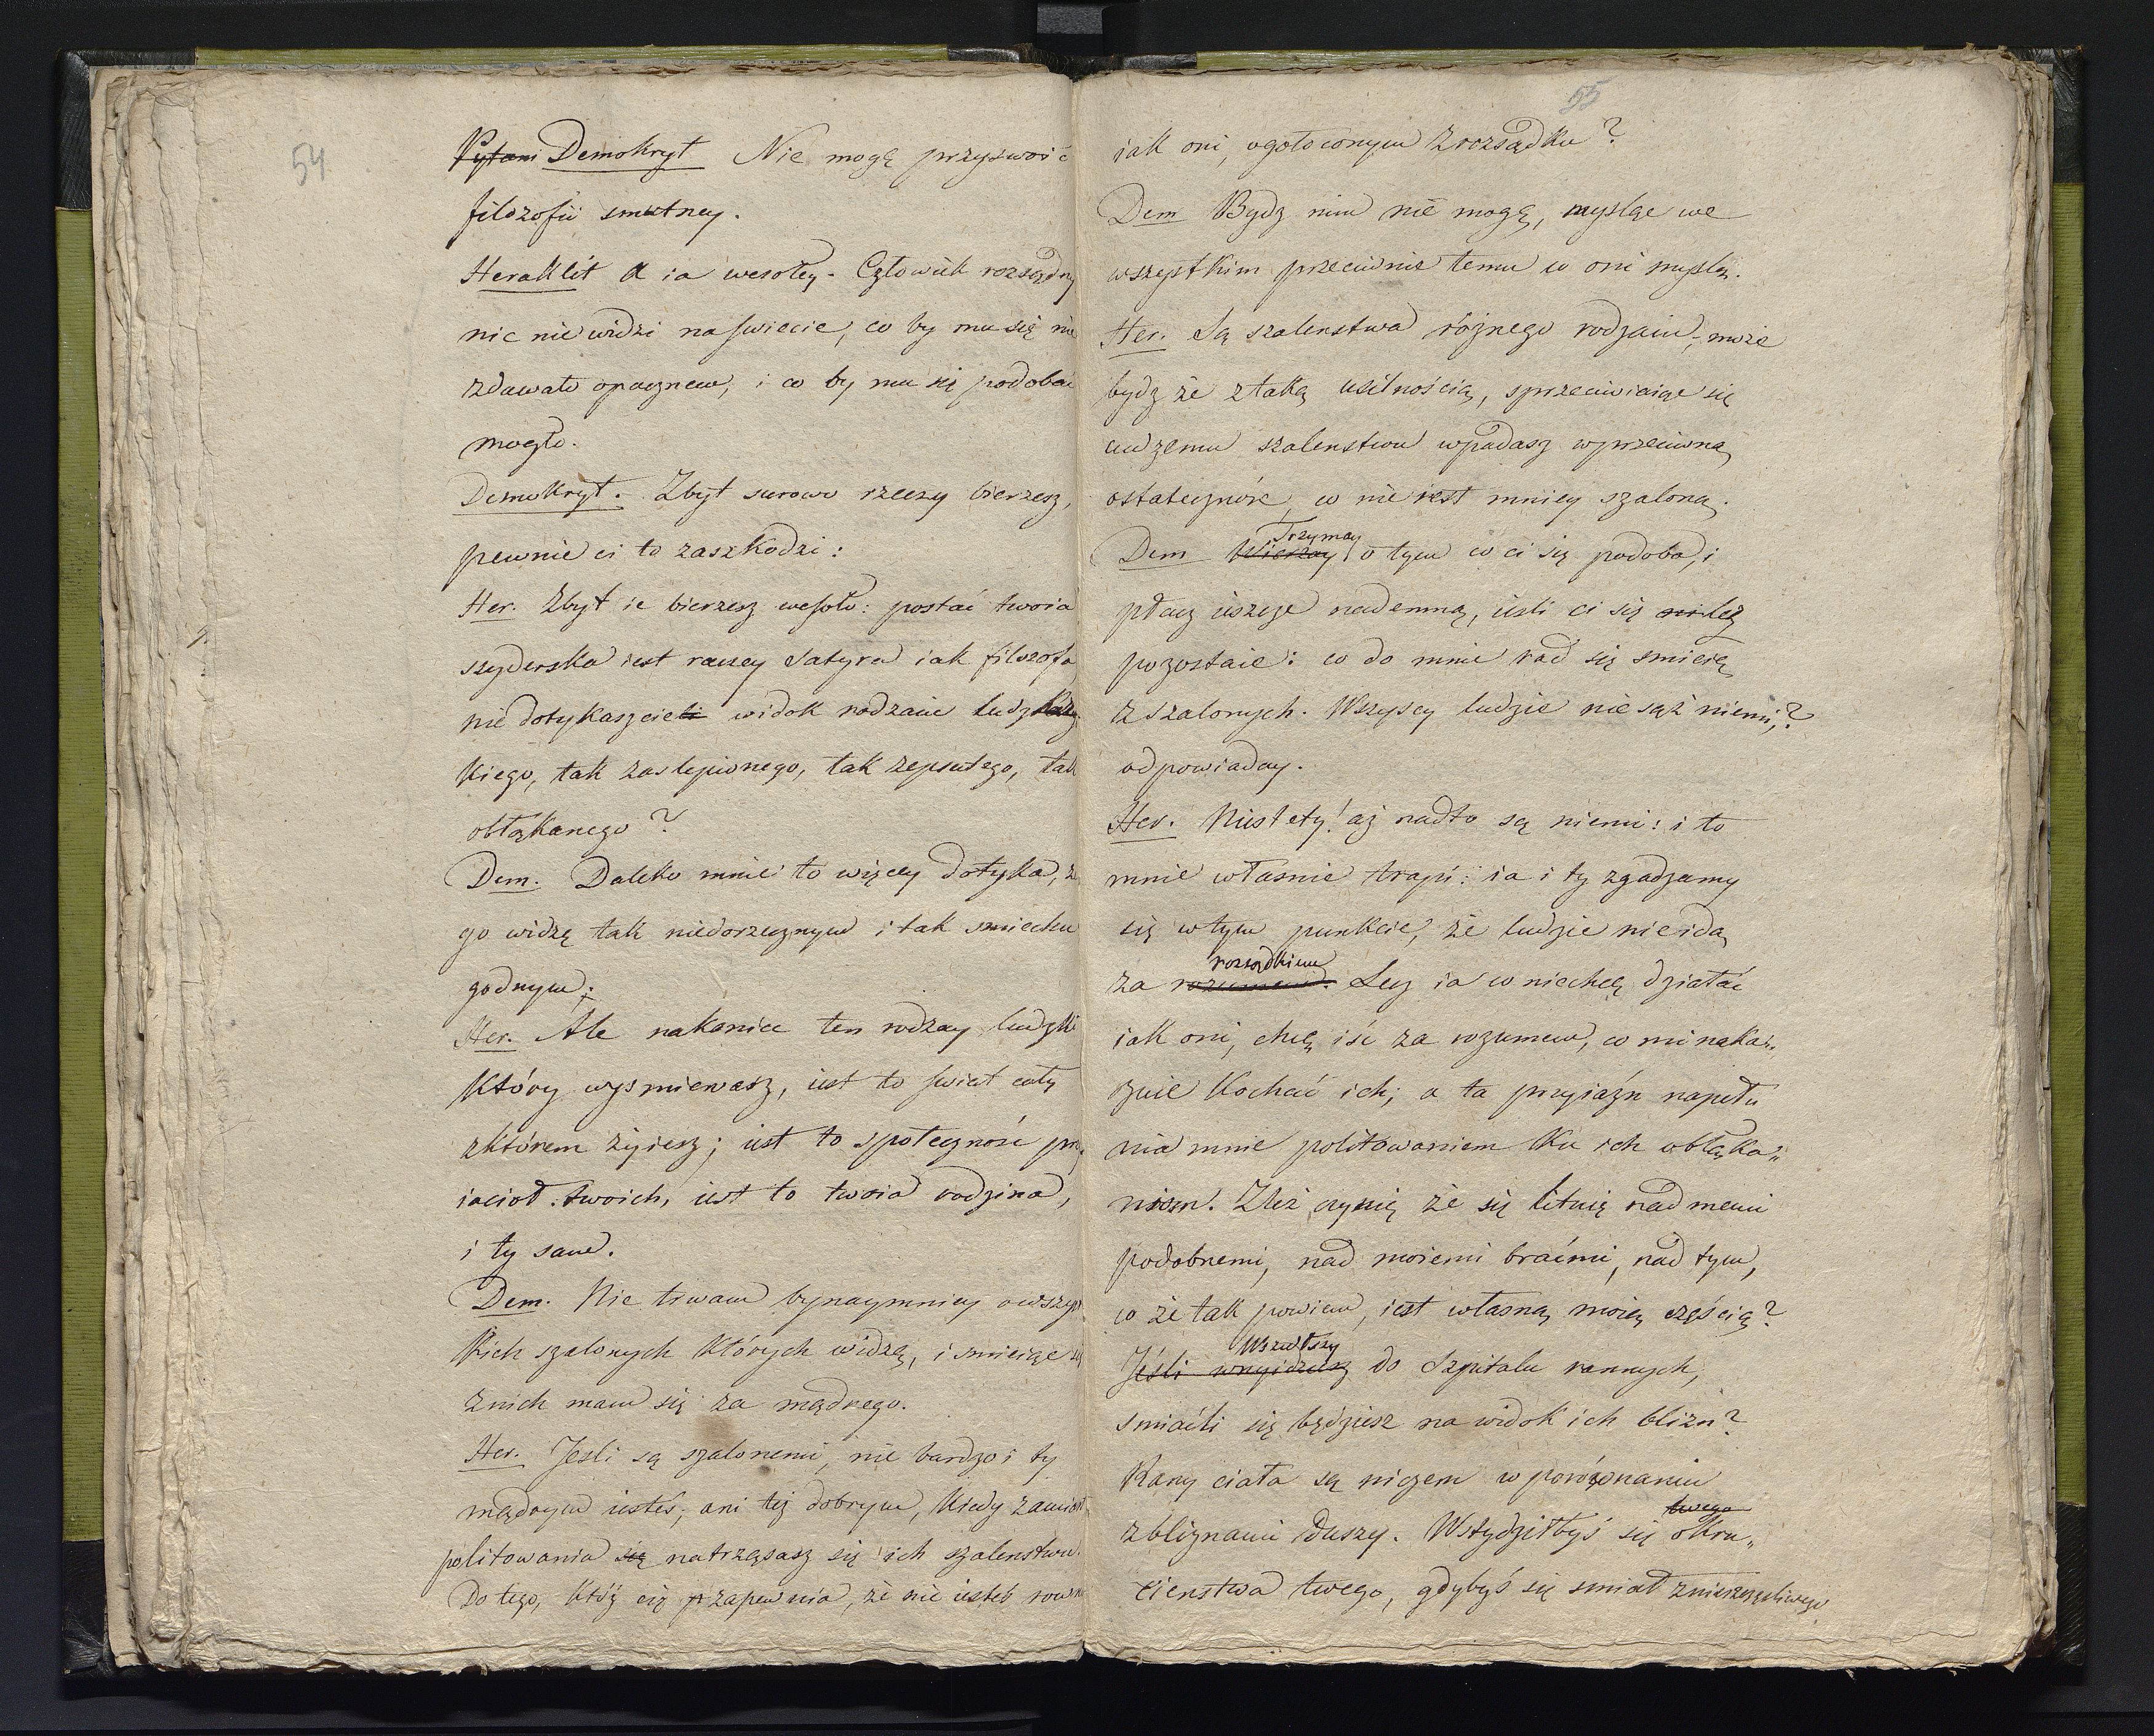 54
Pytani Demokryt Nie mogę przyzwoić
filozofii smutney.
Heraklit A ia wesołey. Człowiek rozsądny
nic nie widzi na swiecie, co by mu się nie
zdawało opacznem, i co by mu się podobać
mogło.
Demokryt. Zbyt surowo rzeczy bierzesz,
pewnie ci to zaszkodzi:
Her. Zbyt ie bierzesz wesoło: postać twoia
szyderska iest raczey Satyra iak filozofa
nie dotykaszcieli widok rodzaiu ludz
kiego, tak zaslepionego, tak zepsutego, tak
obłąkanego?
Dem. Daleko mniei to więcey dotyka, że
go widzę tak niedorzecznym i tak smiechu
godnym.
Her. Ale nakoniec ten rodzay ludzki
który wysmiewasz, iest to swiat cały
z którem żyiesz; iest to społeczność przy
iacioł twoich, iest to twoia rodzina,
i ty sam.
Dem. Nie trwam bynaymniey o wszyst
kich szalonych których widzę, i smieiąc się
z nich mam się za mądrego.
Her. Jesli są szalonemi, nie bardzo i ty
mądrym iesteś; ani tej dobrym, kiedy zamiast
politowania się natrząsasz się ich szalenstwu.
Do tego, któż cię zapewnia, że nie iesteś rown
55
iak oni, ogołoconym z rozsądku?
Dem Bydz nim nie mogę, mysląc we
wszystkim przeciwnie temu co oni myslą.
Her. Są szalenstwa rożnego rodzaiu; może
bydz że z taką usilnością, sprzeciwiaiąc się
cudzemu szalenstwu wpadasz w przeciwną
ostateczność, co nie iest mniey szaloną.
Trzymay
Dem Wierzay o tym co ci się podoba, i
płacz ieszcze nademną, iesli ci się lez
pozostaie: co do mnie rad się smieię
z szalonych. Wszyscy ludzie nie sąż niemi,?
odpowiaday.
Her. Niestety! aż nadto są niemi: i to
mnie własnie trapi: ia i ty zgadzamy
się w tym punkcie, że ludzie nie idą
rozsądkiem
za rozumem. Lecz ia co niechcę działać
iak oni, chcę iść za rozumem, co mi naka„
zuie kochać ich; a ta przyiaźn napełn
nia mnie politowaniem ku ich obłąka„
niom. Zleż czynię że się lituię nad memi
podobnemi, nad moiemi braćmi, nad tym,
co że tak powiem, iest własną moią częścią?
Wszedłszy
Jésli wnyidziesz do Szpitalu rannych,
smiaćli się będziesz na widok ich blizn?
Rany ciała są niczem w porównaniu
twego
z bliznami duszy. Wstydziłbyś się okru„
cienstwa twego, gdybyś się smiał z nieszczęsliwego